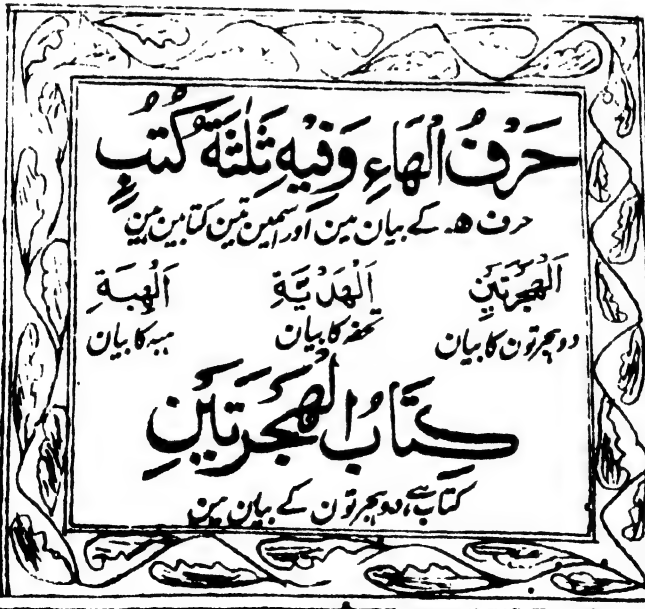 حَرْفُ الْهَاءِ وَفِيْهِ ثَلٰثَةُ كُتُبٍ
حرف ھ کے بیان مین اور اسمین تین کتابین ہین
اَلْهِجْرَتَيْنِ اَلْهَدْيَّةِ اَلْهِبَةِ
دو ہجرتون کا بیان تحفہ کا بیان ہبہ کا بیان
كِتَابُ الْهِجْرَتَيْنِ
کتاب ہے، دو ہجرتون کے بیان مین